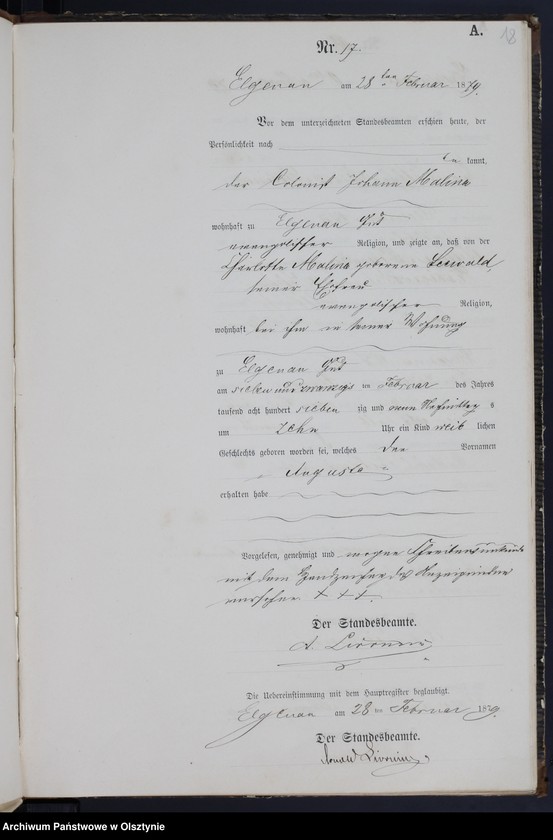 A.
18
Nr. 17.
Elgenau am 28ten Februar 1879.
Vor dem unterzeichneten Standesbeamten erschien heute, der
Persönlichkeit nach
kannt,
der Colonist Johann Malina
wohnhaft zu Elgenau Gut
evangelischer Religion, und zeigte an, daß von der
Charlotte Malina geborene
seiner Ehefrau
evangelischer Religion,
wohnhaft bei ihm in seiner Wohnung
zu Elgenau Gut
am sieben und zwanzigs ten Februar des Jahres
tausend acht hundert sieben zig und neun Nachmittags
um zehn Uhr ein Kind weib lichen
Geschlechts geboren worden sei, welches den Vornamen
Augusta
erhalten habe
Vorgelesen, genehmigt und wegen Schreibensunkunde
mit dem Handzeichen des Anzeigenden
versehen + + +.
Der Standesbeamte.
A.
Die Uebereinstimmung mit dem Hauptregister beglaubigt.
Elgenau am 28 ten Februar 1879.
Der Standesbeamte.
Archiwum Państwowe w Olsztynie